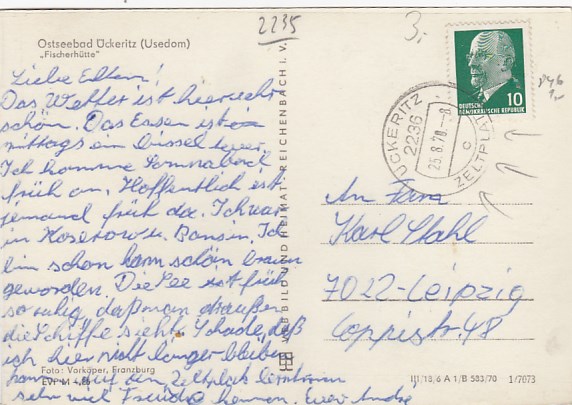 2235
3,-
Ostseebad Ückeritz (Usedom)
„Fischerhütte"
Liebe Eltern!
Das Wetter ist hier recht
schön. Das Essen ist
mittags ein bissel teuer.
Ich komme Sonnabend
früh an. Hoffentlich ist
jemand früh da. Ich war
in Koserow u. Bansin. Ich
bin schon schön braun
geworden. Die See ist früh
so ruhig, daß man draußen
die Schiffe sieht. Schade, daß
ich hier nicht länger bleiben
kann. Auf den Zeltplatz
sehr viel Freude. Euer Andre
Foto: Vorköper, Franzburg
EVP M
VEB BILD UND HEIMAT REICHENBACH i. V.
ÜCKERITZ
2236
25.8.70-8
ZELTPLATZ
c
DEUTSCHE
DEMOKRATISCHE REPUBLIK
10
An Fam.
Karl Stahl
7022-Leipzig
Coppistr. 48
III/18/6 A 1/B 583/70 1/7073